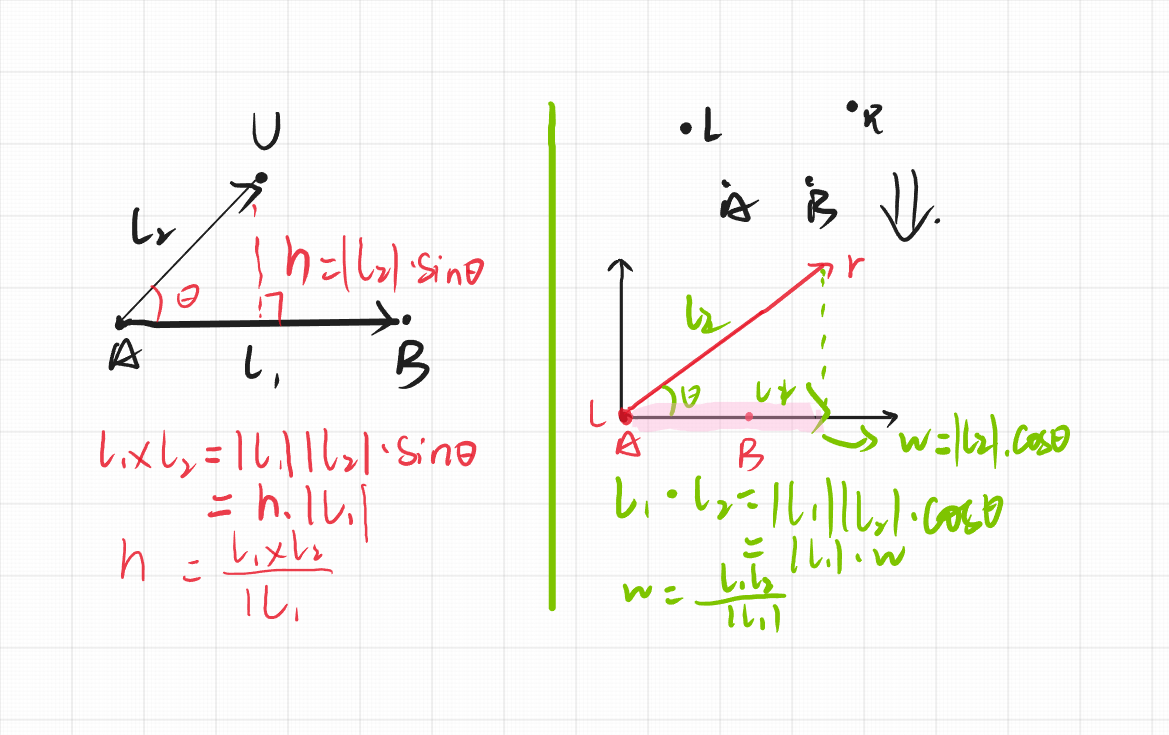 U
L₂
h=|L₂|·sinθ
θ
A
L₁
B
L₁×L₂=|L₁||L₂|·sinθ
=h·|L₁|
h = L₁×L₂
|L₁
·L
·R
A
B
r
L₂
θ
L
A
B
w=|L₂|·cosθ
L₁·L₂=|L₁||L₂|·cosθ
=|L₁|·w
w= L₁L₂
|L₁|